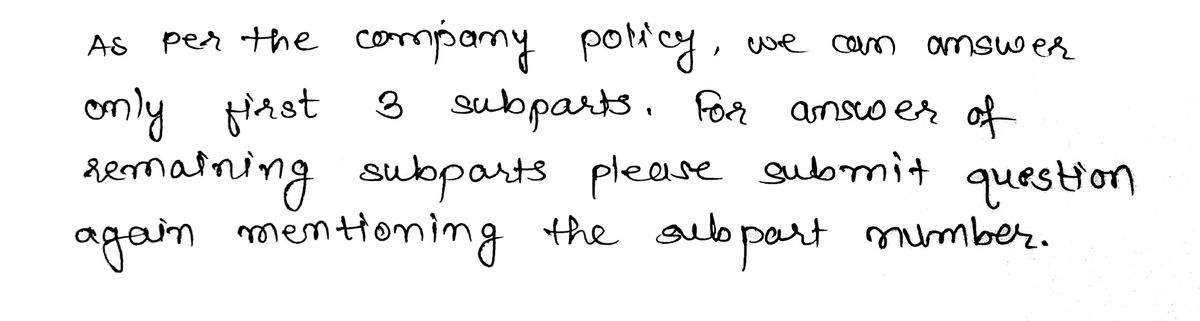 As per the company policy, we can answer
only first 3 subparts. For answer of
remaining subparts please submit question
again mentioning the subpart number.